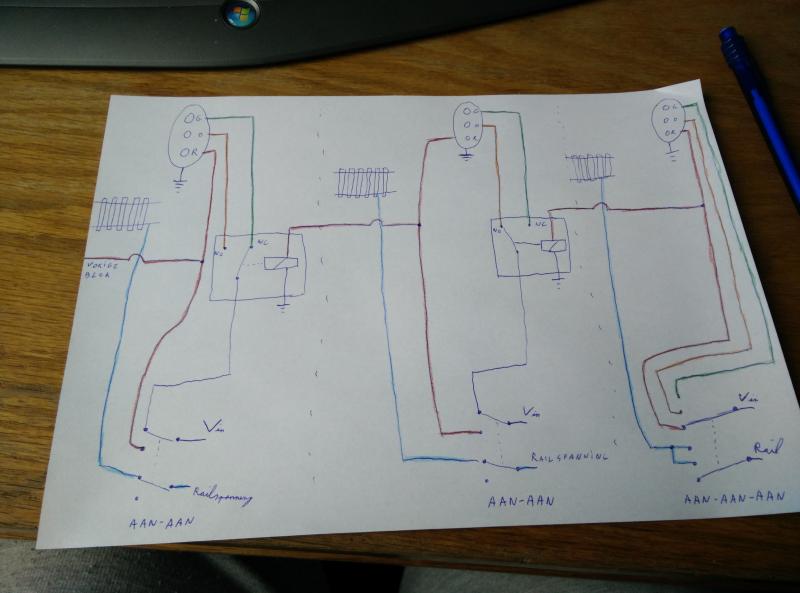 G
O
R
G
O
R
G
O
R
NO
NC
NO
NC
VORIGE
BLOK
Vin
Vin
Vin
Railspanning
RAILSPANNING
Rail
AAN-AAN
AAN-AAN
AAN-AAN-AAN